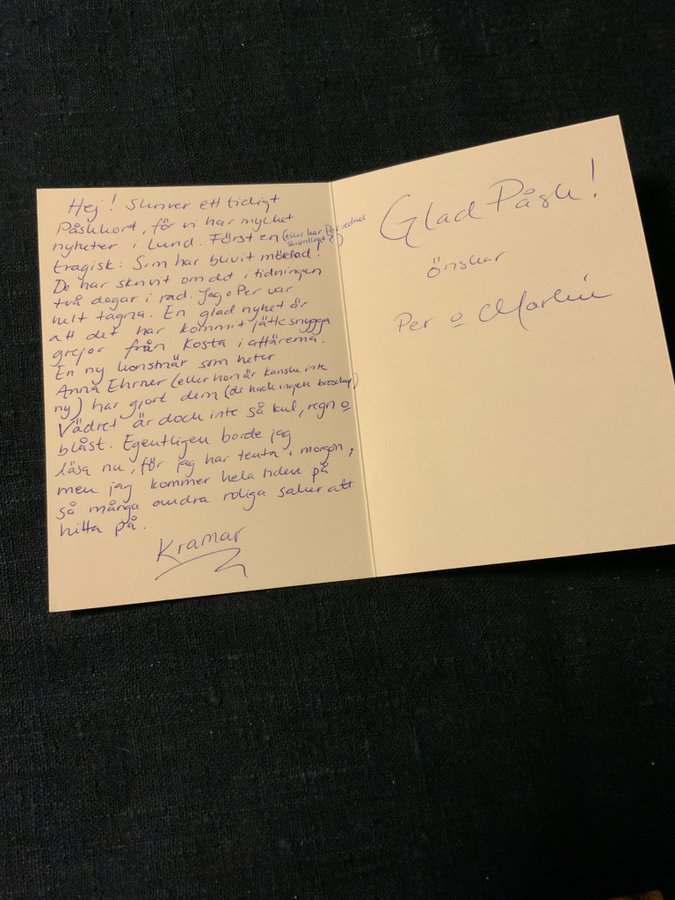 Hej! Skriver ett tidigt
Påskkort, för vi har mycket
nyheter i Lund. Först en (eller har Per redan
skvallrat?)
tragisk: Sim har blivit mördad!
De har skrivit om det i tidningen
två dagar i rad. Jag o Per var
helt tagna. En glad nyhet är
att det har kommit jättesnygga
grejor från Kosta i affärerna.
En ny konstnär som heter
Anna Ehrner (eller hon är kanske inte
ny) har gjort dem (de hade ingen broschyr)
Vädret är dock inte så kul, regn o
blåst. Egentligen borde jag
läsa nu, för jag har tenta i morgon,
men jag kommer hela tiden på
så många andra roliga saker att
hitta på.
Kramar
Glad Påsk!
önskar
Per o Marlin